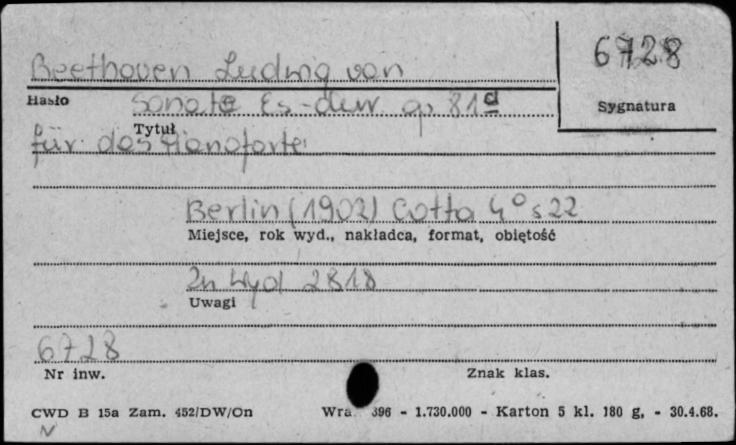 6728
Beethoven Ludwig von
Hasło
Sonate Es-dur op 81a
Sygnatura
Tytuł
für das Pianoforte
Berlin (1902) Cotta 4° s 22
Miejsce, rok wyd., nakładca, format, objętość
Zn wyd 2818
Uwagi
6728
Nr inw.
Znak klas.
CWD B 15a Zam. 452/DW/On Wra. 396 - 1.730.000 - Karton 5 kl. 180 g, - 30.4.68.
N